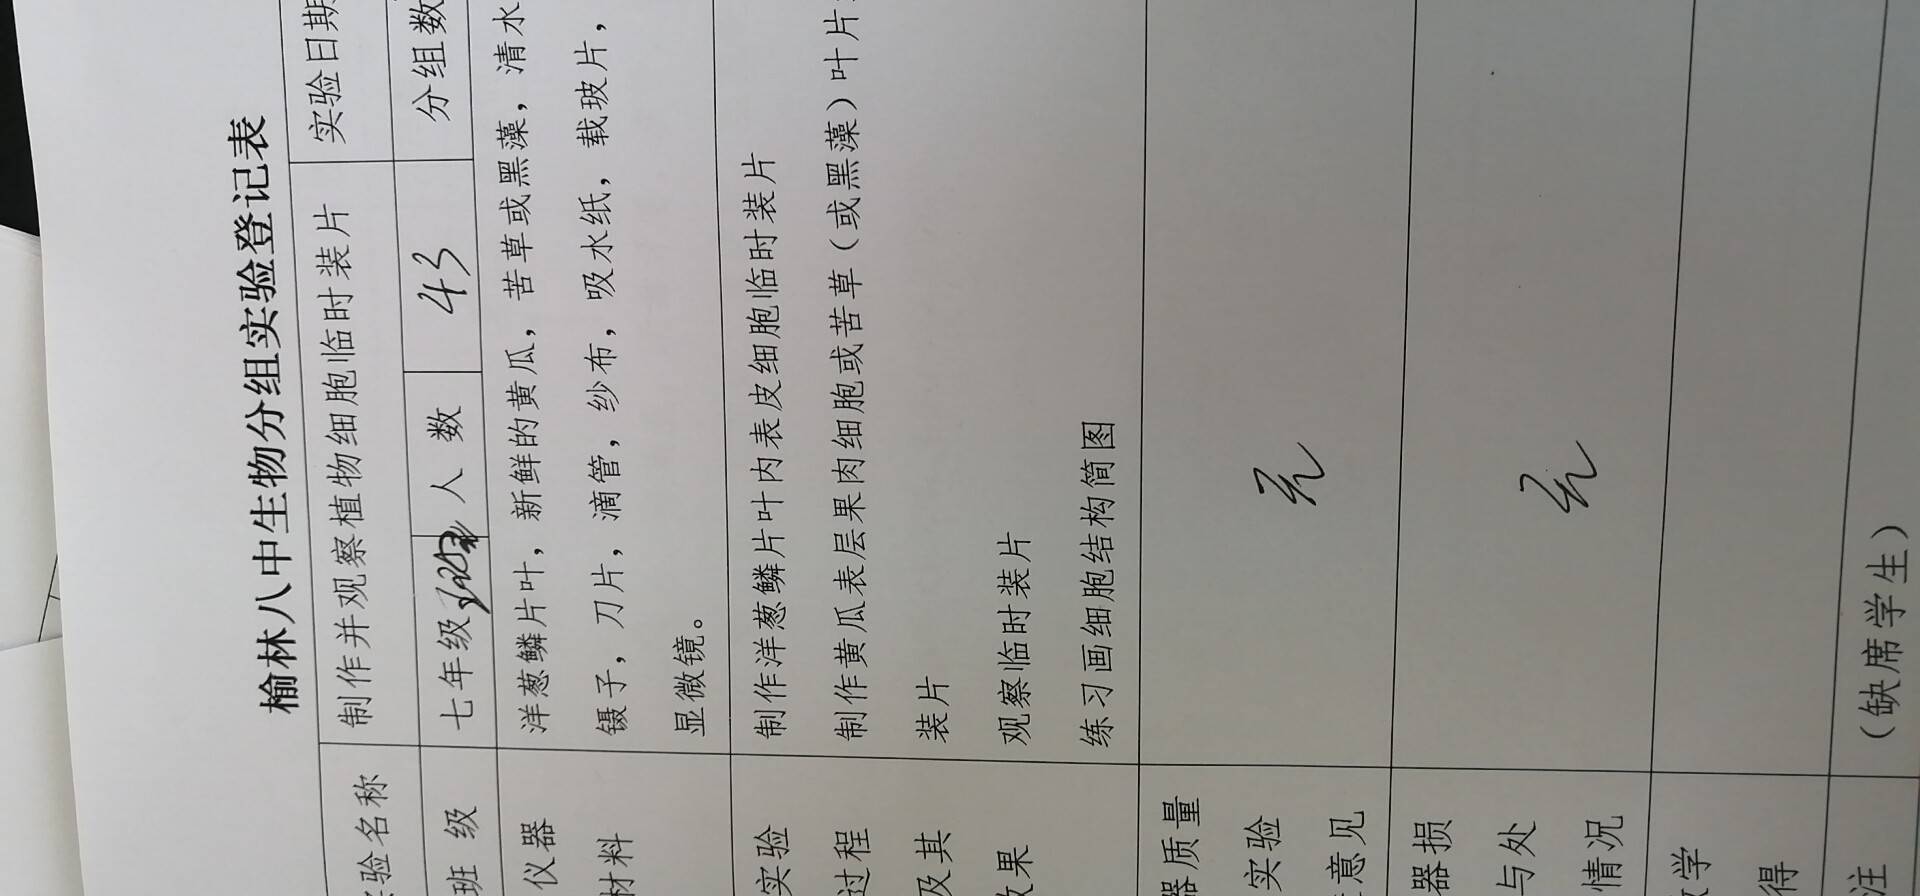 榆林八中生物分组实验登记表
实验名称 制作并观察植物细胞临时装片 实验日期
班 级 七年级 人 数 43 分组数
仪器 洋葱鳞片叶，新鲜的黄瓜，苦草或黑藻，清水
材料 镊子，刀片，滴管，纱布，吸水纸，载玻片，
显微镜。
实验 制作洋葱鳞片叶内表皮细胞临时装片
过程 制作黄瓜表层果肉细胞或苦草（或黑藻）叶片
及其 装片
效果 观察临时装片
练习画细胞结构简图
器质量
实验 无
意见
器损
与处 无
情况
教学
得
注 （缺席学生）